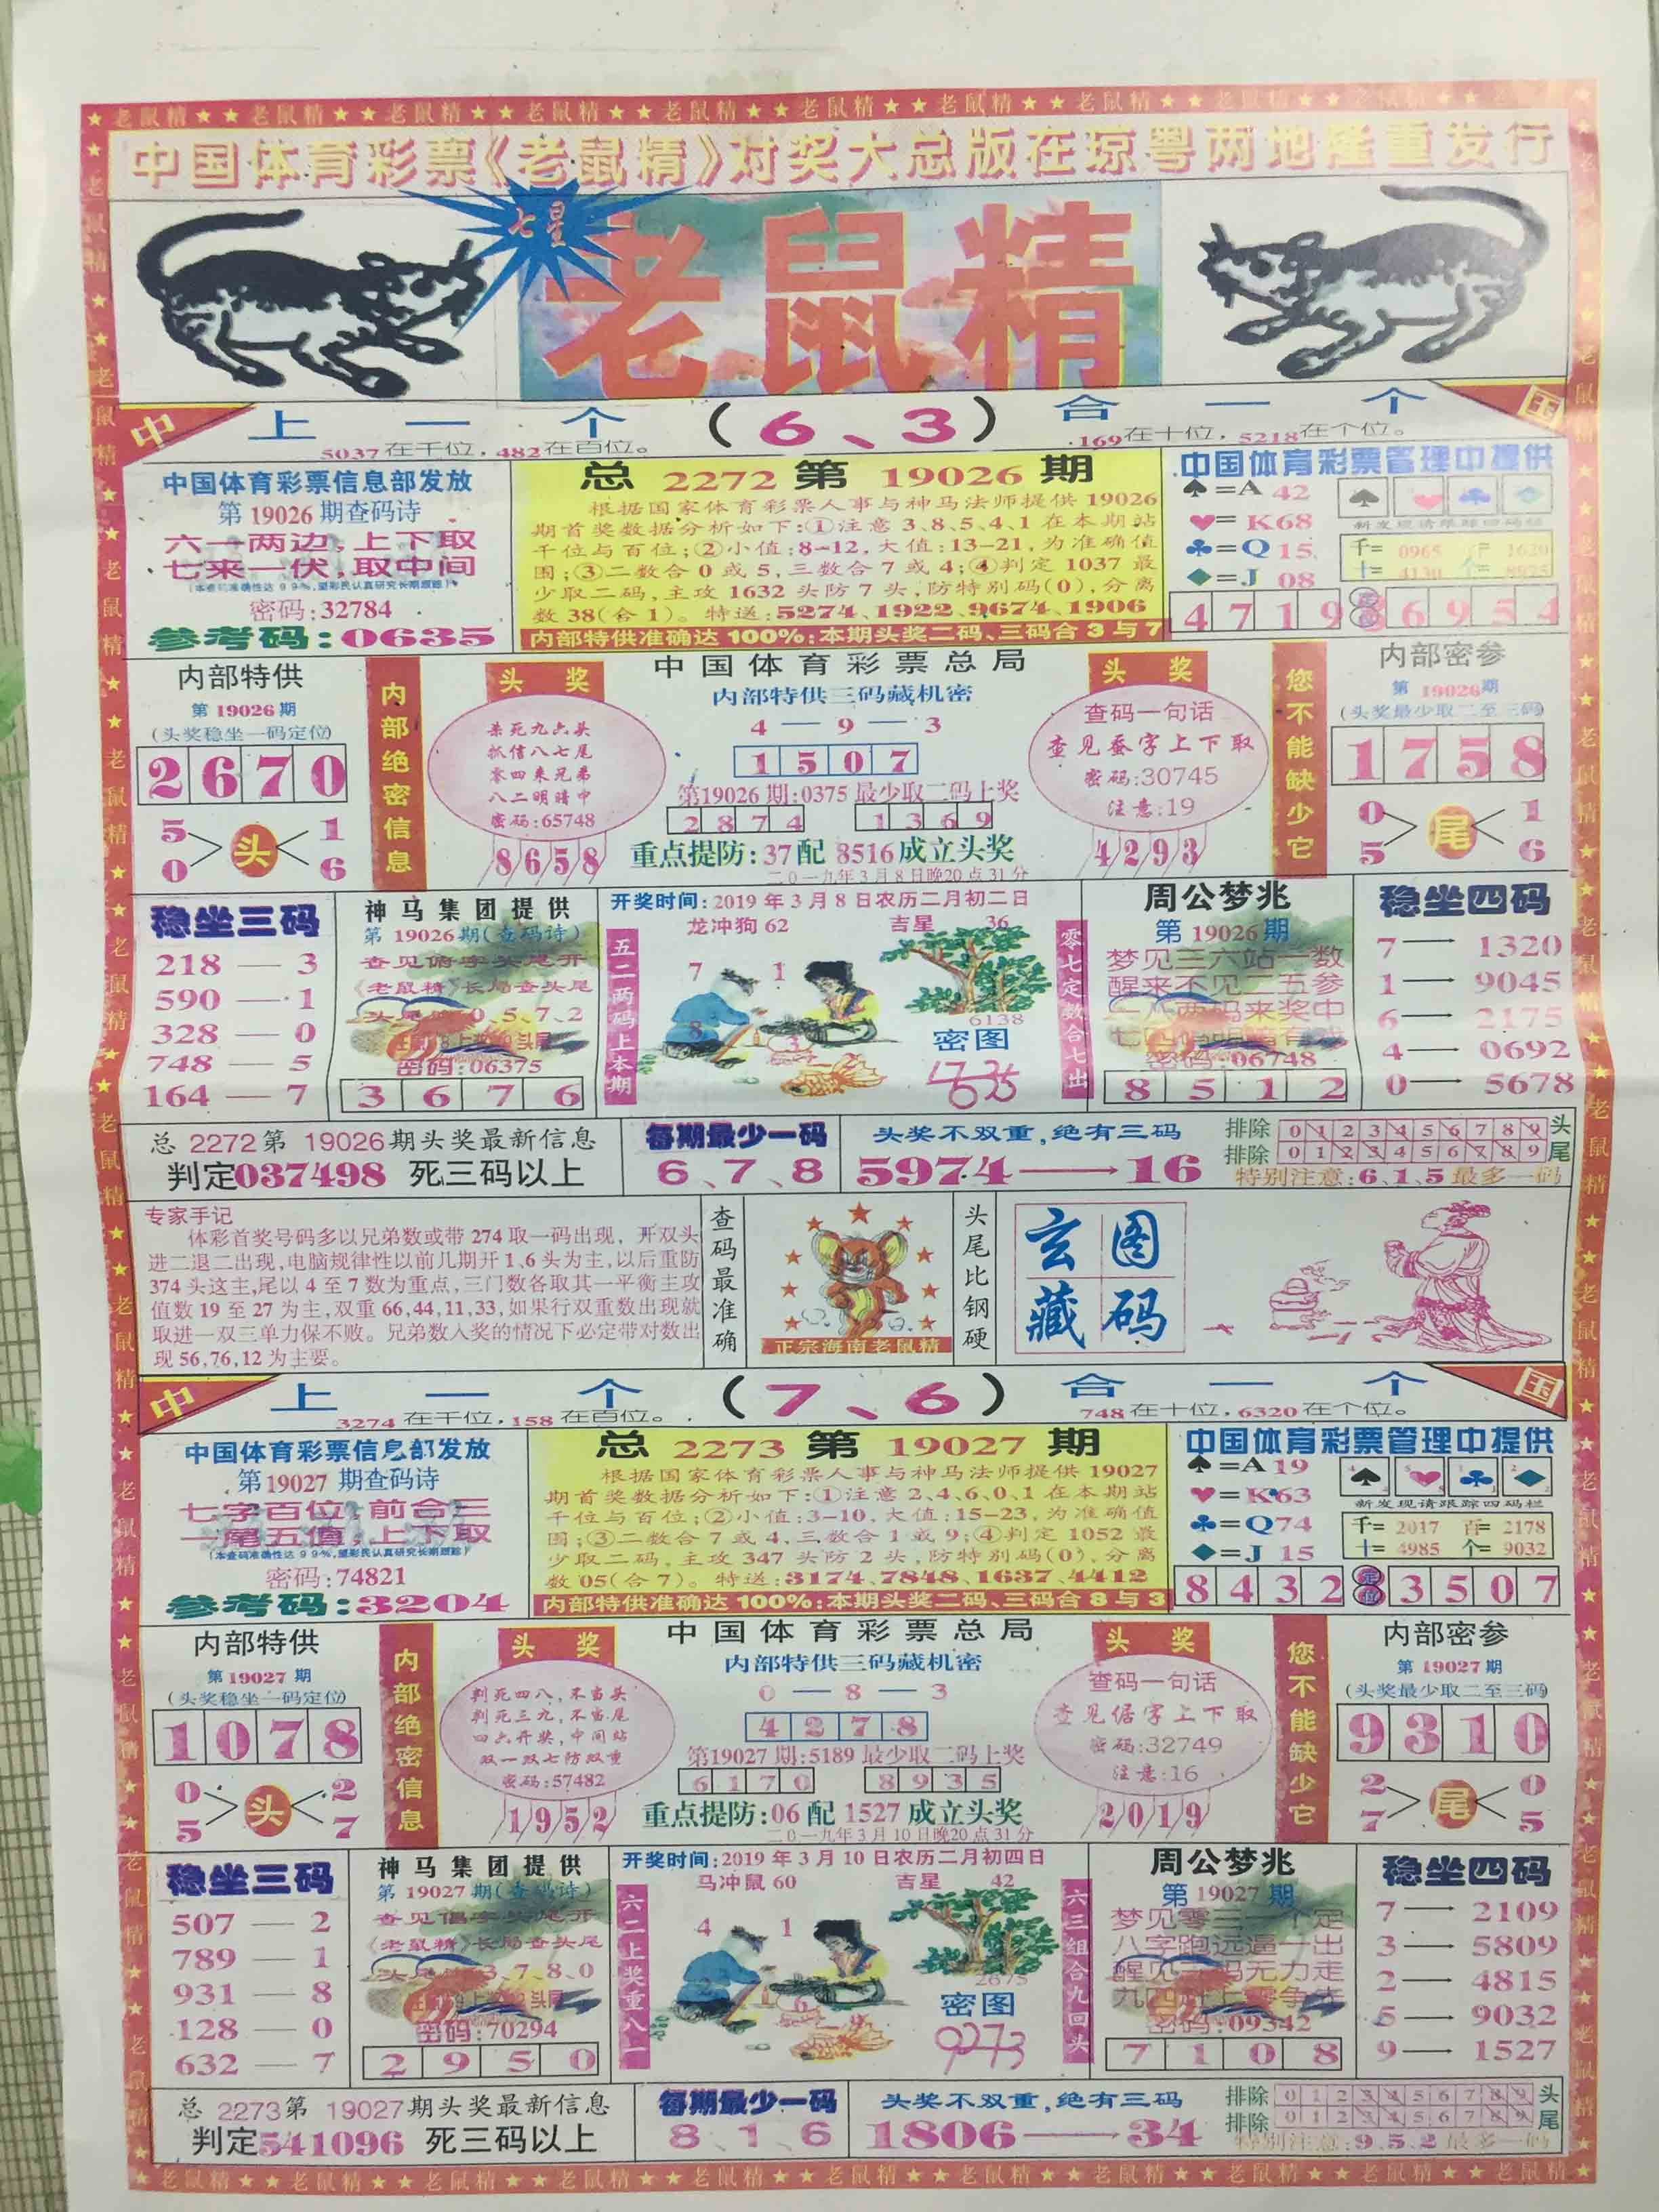 中国体育彩票《老鼠精》对奖大总版在琼粤两地隆重发行
七星
老鼠精
中
上一个
(6、3)
合一个
国
5037在千位,482在百位。
169在十位,5218在个位。
中国体育彩票信息部发放
第19026期查码诗
六一两边,上下取
七来一伏,取中间
(本查码准确性达99%,望彩民认真研究长期跟踪)
密码:32784
参考码:0635
总2272第19026期
根据国家体育彩票人事与神马法师提供19026
期首奖数据分析如下:①注意3、8、5、4、1在本期站
千位与百位;②小值:8-12,大值:13-21,为准确值
围;③二数合0或5,三数合7或4;④判定1037最
少取二码,主攻1632头防7头,防特别码(0),分离
数38(合1)。特送:5274、1922、9674、1906
内部特供准确达100%:本期头奖二码、三码合3与7
中国体育彩票管理中提供
♠=A 42
♥=K68
♣=Q 15
♦=J 08
新发现请跟踪四码栏
千=0965
十=4130
4 7 1 9
6 9 5 4
内部特供
第19026期
(头奖稳坐一码定位)
2 6 7 0
5 0 头 1 6
内部绝密信息
头奖
杀死九六头
抓信八七尾
零四来兄弟
八二明暗中
密码:65748
8 6 5 8
中国体育彩票总局
内部特供三码藏机密
4 — 9 — 3
1 5 0 7
第19026期:0375最少取二码上奖
2 8 7 4
1 3 6 9
重点提防:37配8516成立头奖
二0一九年3月8日晚20点31分
头奖
查码一句话
查见蚕字上下取
密码:30745
注意:19
4 2 9 3
您不能缺少它
内部密参
第19026期
(头奖最少取二至三码)
1 7 5 8
0 5 尾 1 6
稳坐三码
218 — 3
590 — 1
328 — 0
748 — 5
164 — 7
神马集团提供
第19026期(查码诗)
查见俯字头尾开
《老鼠精》长局查头尾
0、5、7、2
密码:06375
3 6 7 6
开奖时间:2019年3月8日农历二月初二日
龙冲狗62
吉星 36
五二两码上本期
7 1
8
3
2
6138
密图
零七定数合七出
周公梦兆
第19026期
梦见三六站一数
醒来不见二五参
一八两码来奖中
密码:06748
8 5 1 2
稳坐四码
7 — 1320
1 — 9045
6 — 2175
4 — 0692
0 — 5678
总2272第19026期头奖最新信息
判定037498 死三码以上
每期最少一码
6、7、8
头奖不双重,绝有三码
5974——16
排除 0 1 2 3 4 5 6 7 8 9 头
排除 0 1 2 3 4 5 6 7 8 9 尾
特别注意:6、1、5最多一码
专家手记
体彩首奖号码多以兄弟数或带274取一码出现,开双头
进二退二出现,电脑规律性以前几期开1、6头为主,以后重防
374头这主,尾以4至7数为重点,三门数各取其一平衡主攻
值数19至27为主,双重66,44,11,33,如果行双重数出现就
取进一双三单力保不败。兄弟数入奖的情况下必定带对数出
现56,76,12为主要。
查码最准确
正宗海南老鼠精
头尾比钢硬
玄图
藏码
中
上一个
(7、6)
合一个
国
3274在千位,158在百位。
748在十位,6320在个位。
中国体育彩票信息部发放
第19027期查码诗
七字百位,前合三
一尾五值,上下取
(本查码准确性达99%,望彩民认真研究长期跟踪)
密码:74821
参考码:3204
总2273第19027期
根据国家体育彩票人事与神马法师提供19027
期首奖数据分析如下:①注意2、4、6、0、1在本期站
千位与百位;②小值:3-10,大值:15-23,为准确值
围;③二数合7或4,三数合1或9;④判定1052最
少取二码,主攻347头防2头,防特别码(0),分离
数05(合7)。特送:3174、7848、1637、4412
内部特供准确达100%:本期头奖二码、三码合8与3
中国体育彩票管理中提供
♠=A 19
♥=K63
♣=Q74
♦=J 15
新发现请跟踪四码栏
千=2017 百=2178
十=4985 个=9032
8 4 3 2 定位 3 5 0 7
内部特供
第19027期
(头奖稳坐一码定位)
1 0 7 8
0 5 头 2 7
内部绝密信息
头奖
判死四八,不当头
判死三九,不当尾
四六开奖,中间站
双一双七防双重
密码:57482
1 9 5 2
中国体育彩票总局
内部特供三码藏机密
0 — 8 — 3
4 2 7 8
第19027期:5189最少取二码上奖
6 1 7 0
8 9 3 5
重点提防:06配1527成立头奖
二0一九年3月10日晚20点31分
头奖
查码一句话
查见倨字上下取
密码:32749
注意:16
2 0 1 9
您不能缺少它
内部密参
第19027期
(头奖最少取二至三码)
9 3 1 0
2 7 尾 0 5
稳坐三码
507 — 2
789 — 1
931 — 8
128 — 0
632 — 7
神马集团提供
第19027期(查码诗)
查见倡字头尾开
《老鼠精》长局查头尾
3、7、8、0
密码:70294
2 9 5 0
开奖时间:2019年3月10日农历二月初四日
马冲鼠60
吉星 42
六二上奖重八一
4 1
2
6
9
2675
密图
9273
六三组合九回头
周公梦兆
第19027期
梦见零三一个定
八字跑远逼一出
密码:09342
7 1 0 8
稳坐四码
7 — 2109
3 — 5809
2 — 4815
5 — 9032
9 — 1527
总2273第19027期头奖最新信息
判定541096 死三码以上
每期最少一码
8、1、6
头奖不双重,绝有三码
1806——34
排除 0 1 2 3 4 5 6 7 8 9 头
排除 0 1 2 3 4 5 6 7 8 9 尾
特别注意:9、5、2最多一码